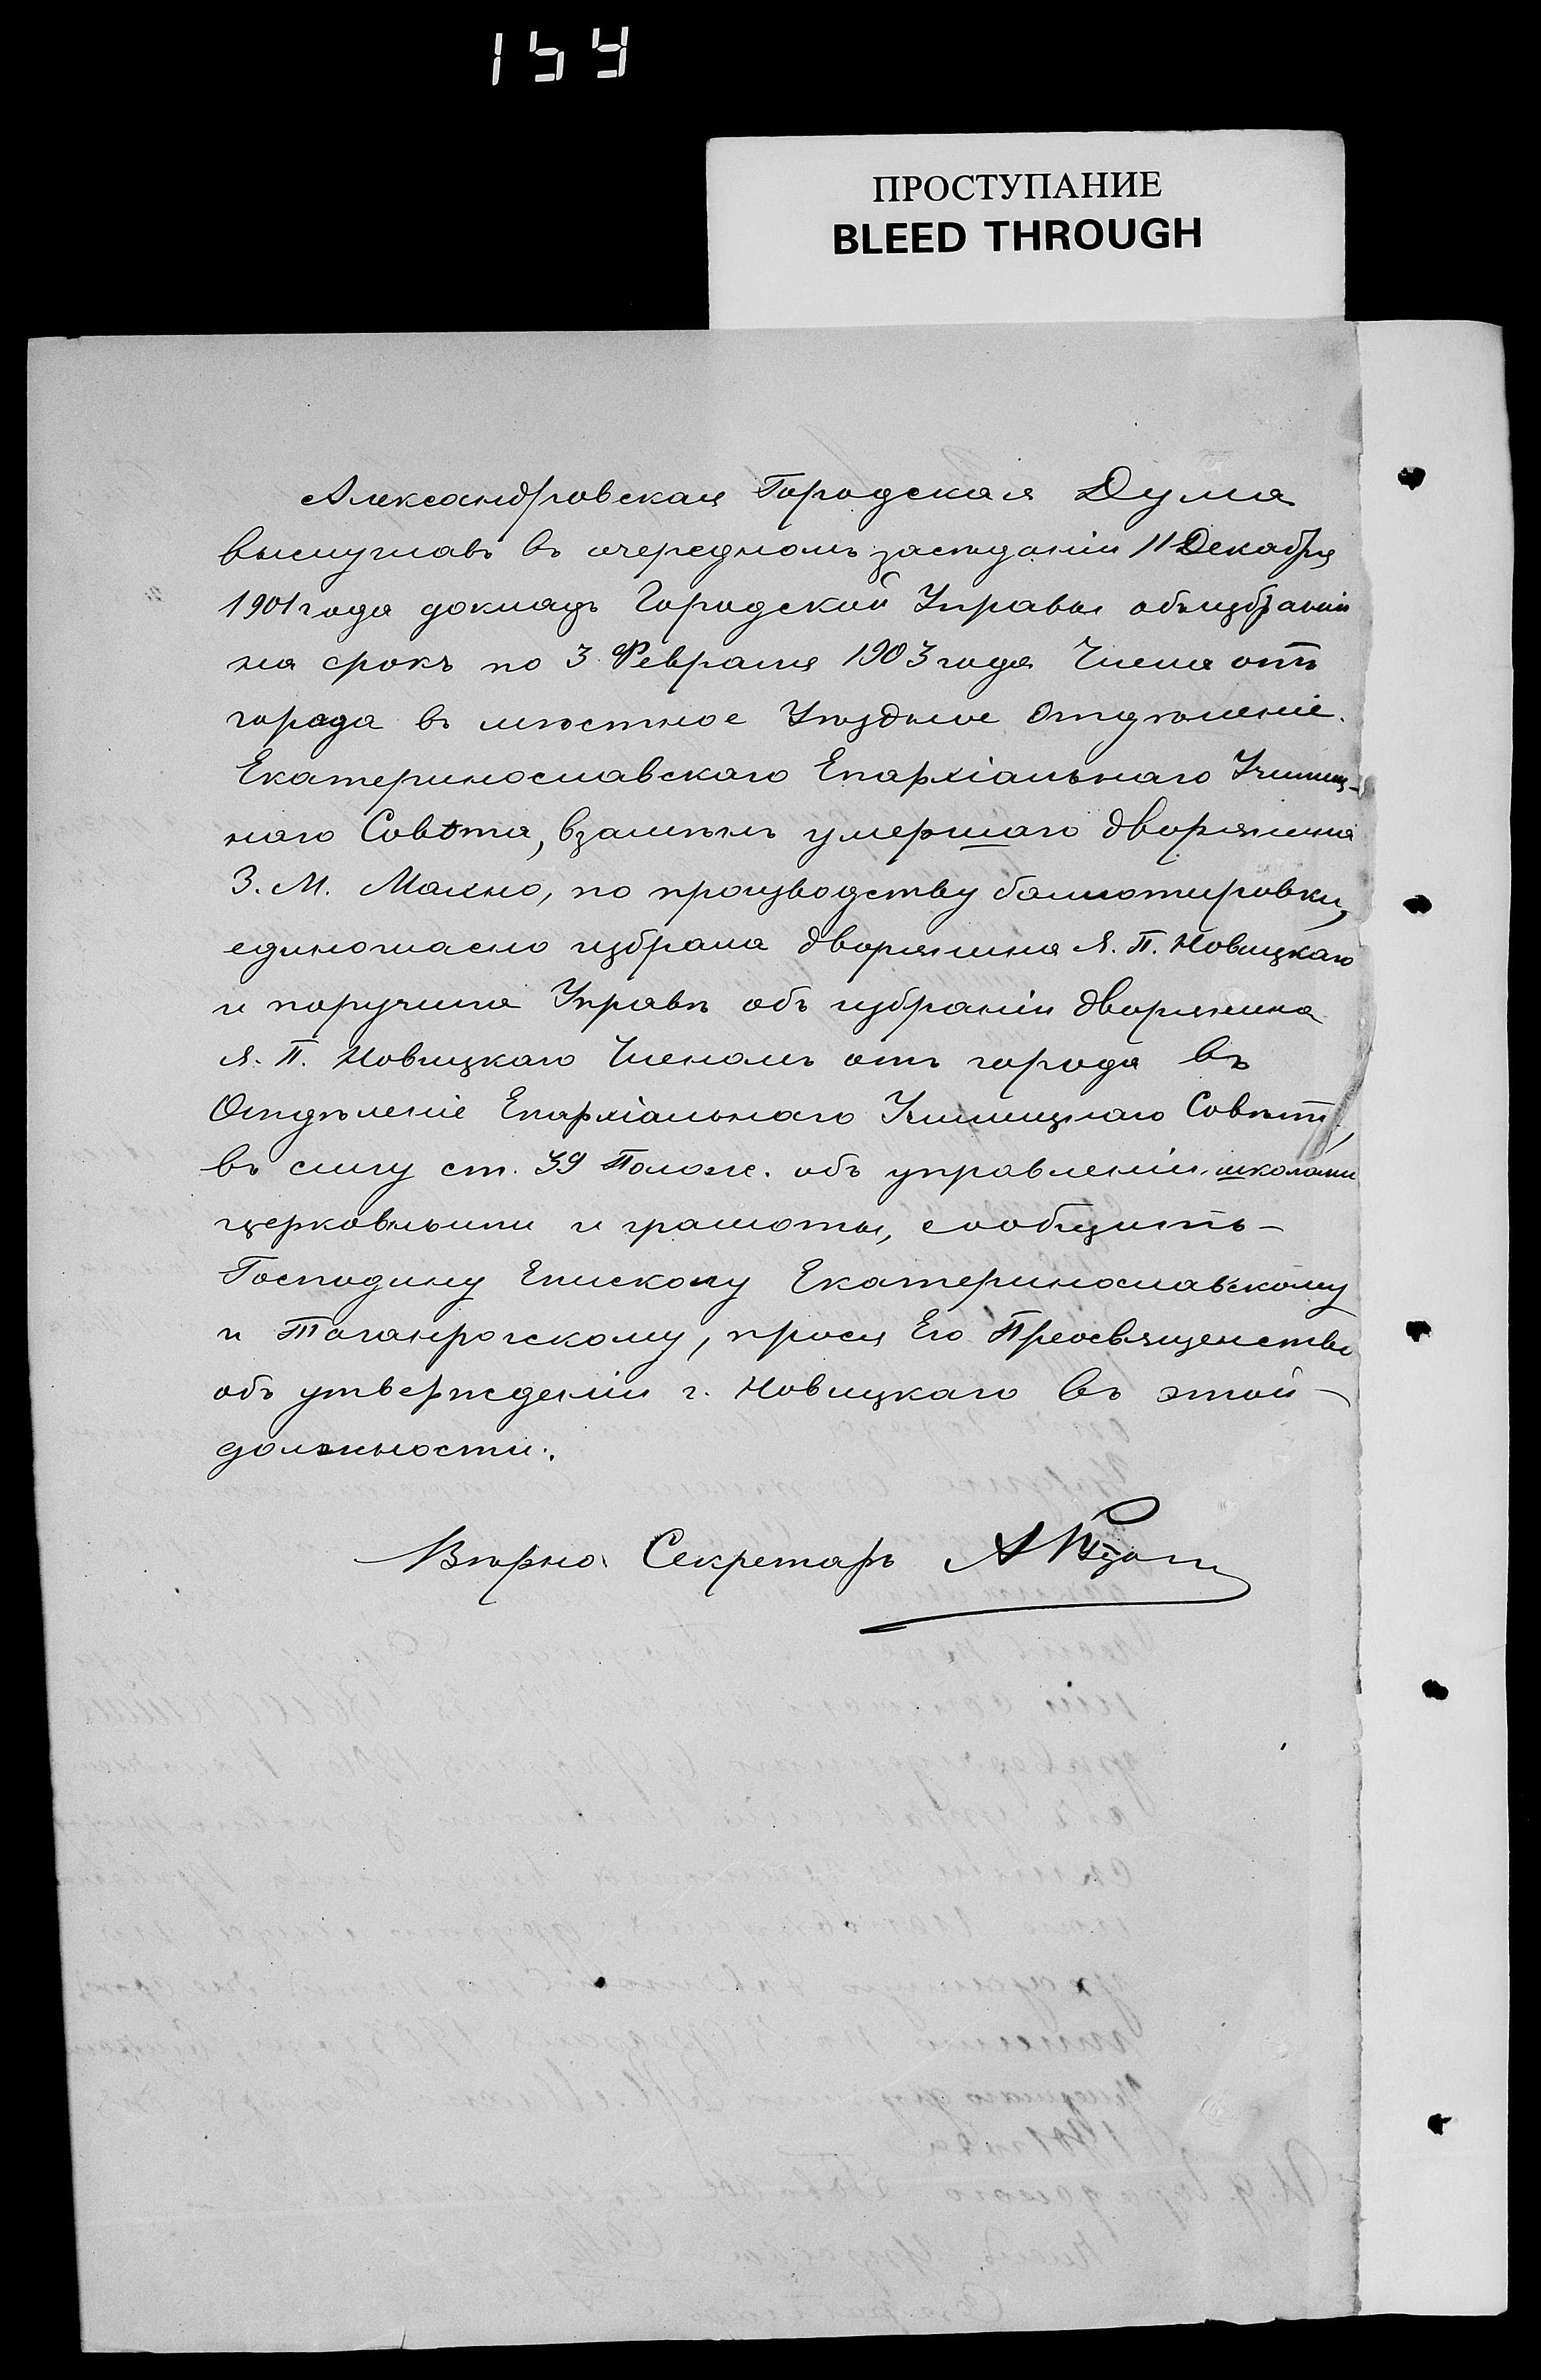 154
ПРОСТУПАНИЕ
BLEED THROUGH
Александровская Городская Дума
выслушавъ въ очередномъ засѣданіи 11 Декабря
1901 года докладъ Городской Управы объ избраніи
на срокъ по 3 Февраля 1903 года Члена отъ
города въ мѣстное Уѣздное Отдѣленіе
Екатеринославскаго Епархіальнаго Училищ-
наго Совѣта, взамѣнъ умершаго дворянина
З. М. Махно, по производству баллотировки,
единогласно избрала дворянина Я. П. Новицкаго
и поручила Управѣ объ избраніи дворянина
Я. П. Новицкаго Членомъ отъ города въ
Отдѣленіе Епархіальнаго Училищнаго Совѣта,
въ силу ст. 39 Полож. объ управленіи школами
церковными и грамоты, сообщить
Господину Епископу Екатеринославскому
и Таганрогскому, прося Его Преосвященство
объ утвержденіи г. Новицкаго въ этой
должности.
Вѣрно: Секретарь